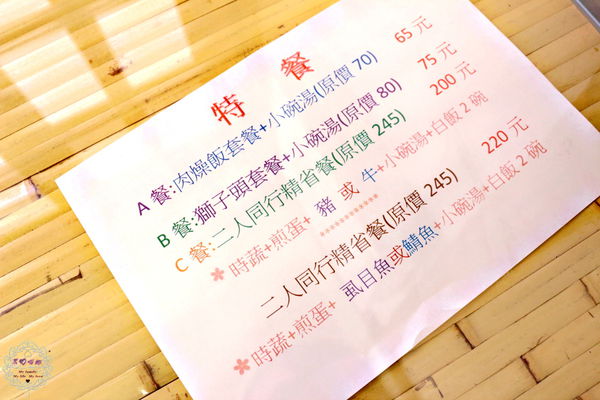 特 餐
A 餐:肉燥飯套餐+小碗湯(原價 70) 65 元
B 餐:獅子頭套餐+小碗湯(原價 80) 75 元
C 餐:二人同行精省餐(原價 245) 200 元
時蔬+煎蛋+ 豬 或 牛+小碗湯+白飯 2 碗
二人同行精省餐(原價 245) 220 元
時蔬+煎蛋+ 虱目魚或鯖魚+小碗湯+白飯 2 碗
My family
My life My love